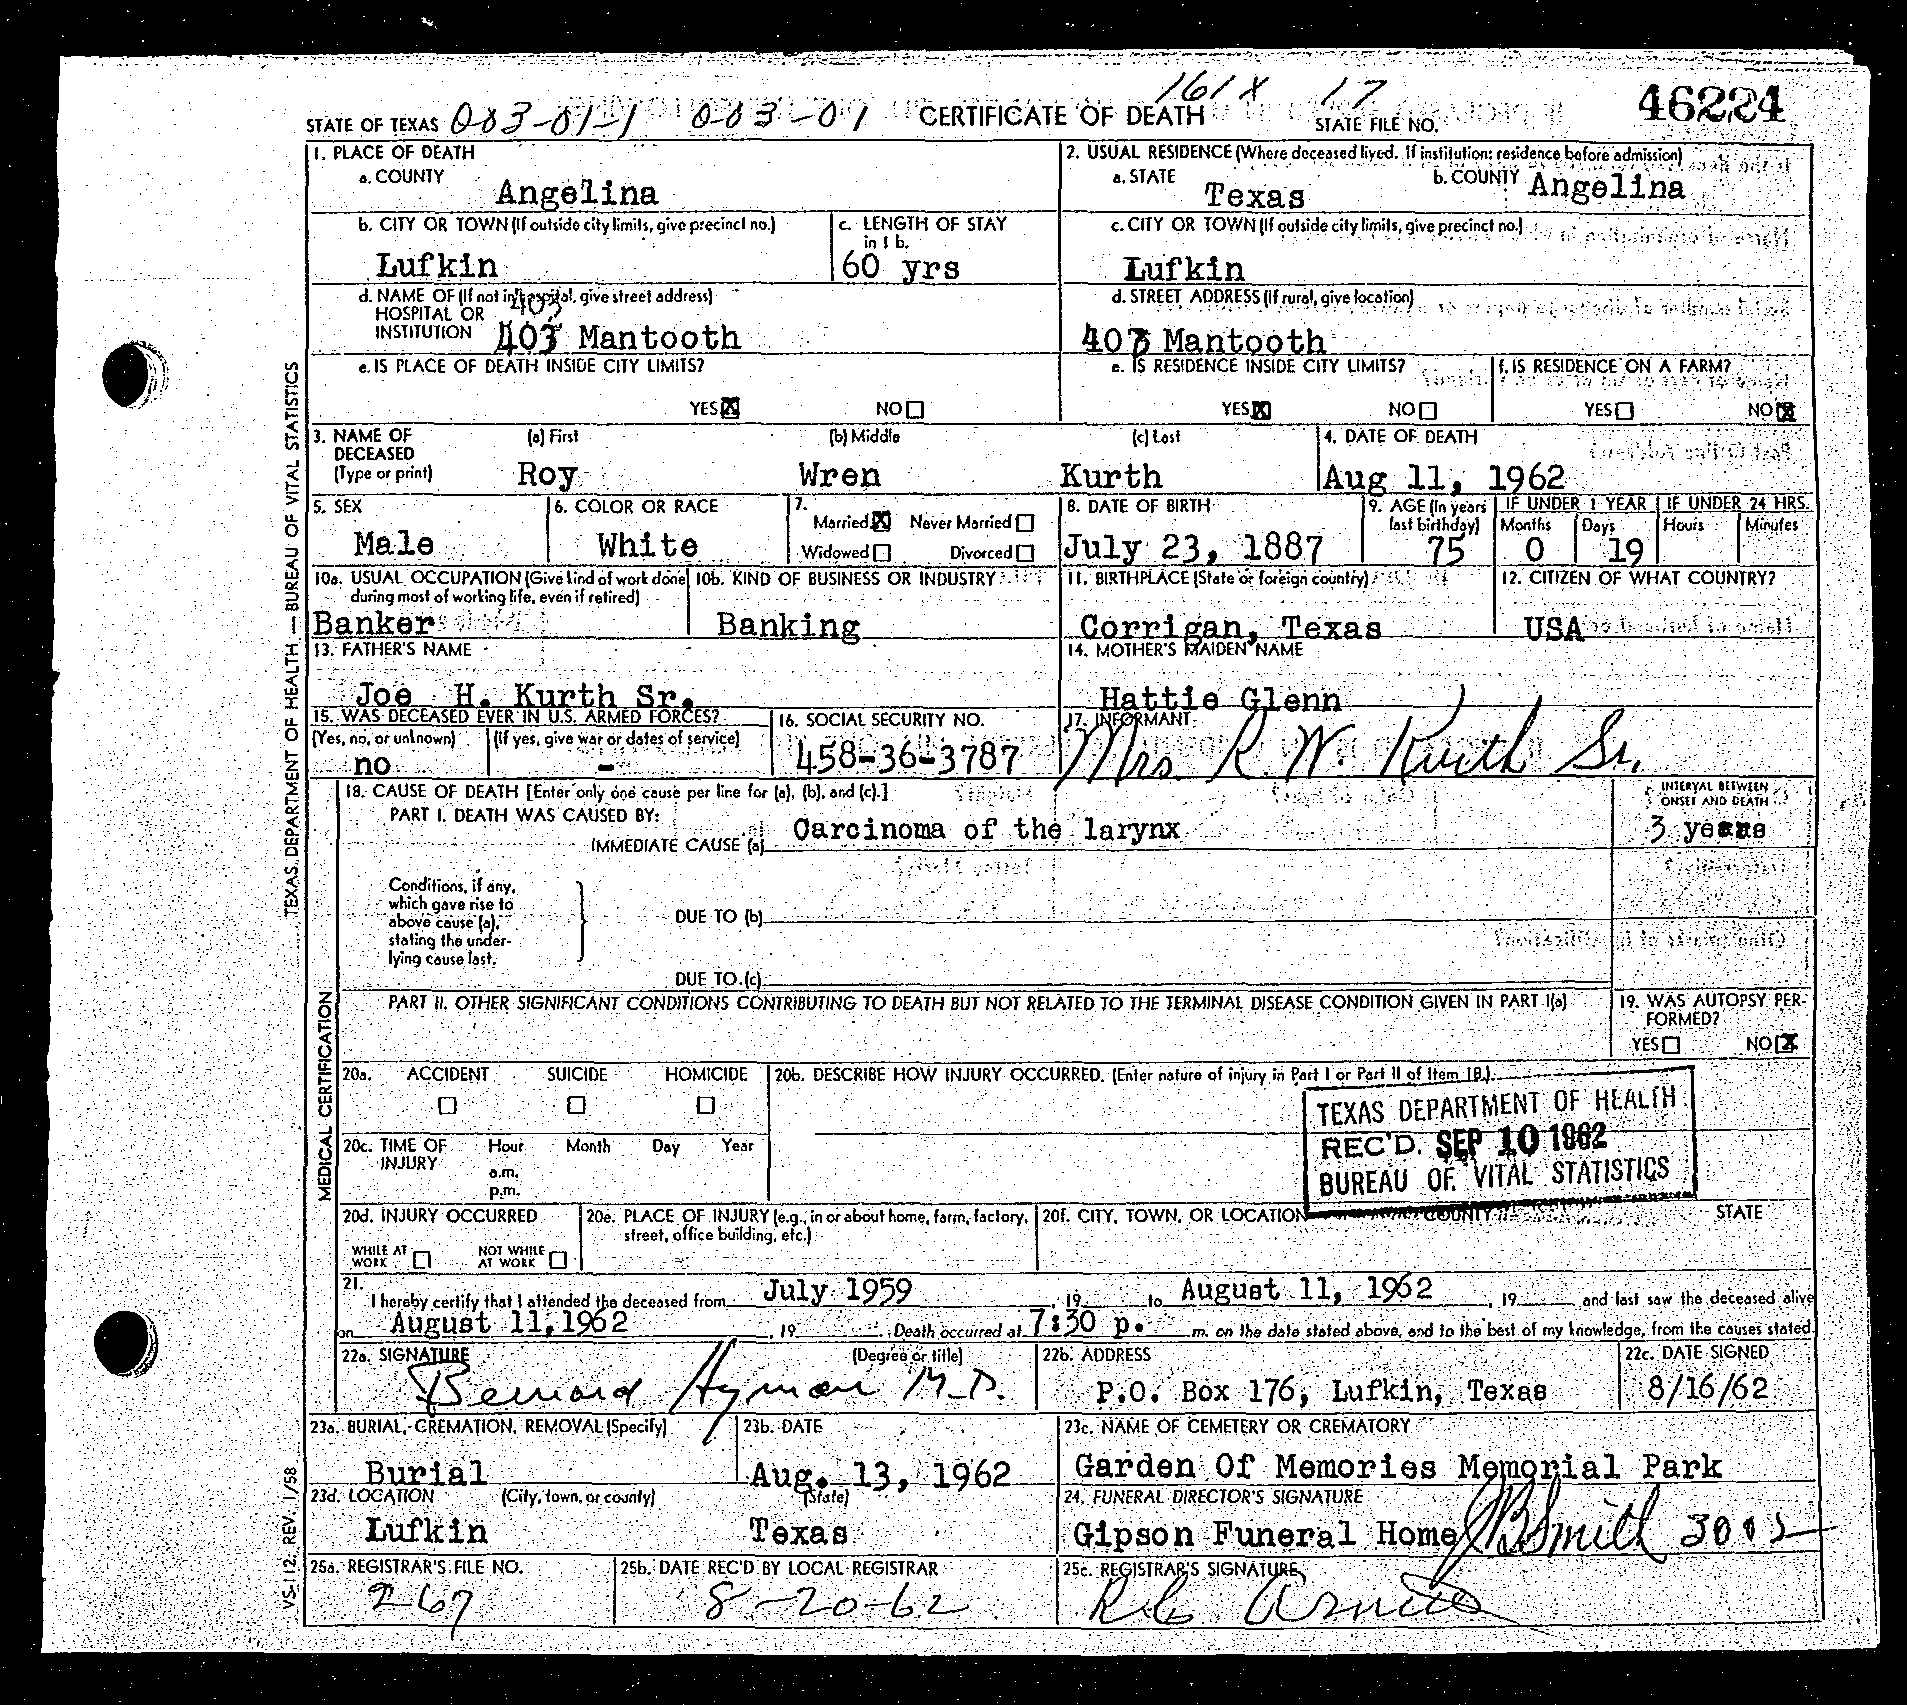 161X 17
STATE OF TEXAS 003-01-1 003-01 CERTIFICATE OF DEATH STATE FILE NO. 46224
1. PLACE OF DEATH
a. COUNTY Angelina
2. USUAL RESIDENCE (Where deceased lived. If institution: residence before admission)
a. STATE Texas b. COUNTY Angelina
b. CITY OR TOWN (If outside city limits, give precinct no.) Lufkin
c. LENGTH OF STAY in 1 b. 60 yrs
c. CITY OR TOWN (If outside city limits, give precinct no.) Lufkin
d. NAME OF (If not in hospital, give street address) HOSPITAL OR INSTITUTION 403
403 Mantooth
d. STREET ADDRESS (If rural, give location)
403 Mantooth
e. IS PLACE OF DEATH INSIDE CITY LIMITS?
YES X NO
e. IS RESIDENCE INSIDE CITY LIMITS?
YES X NO
f. IS RESIDENCE ON A FARM?
YES NO X
3. NAME OF DECEASED (Type or print)
(a) First (b) Middle (c) Last
Roy Wren Kurth
4. DATE OF DEATH
Aug 11, 1962
5. SEX
Male
6. COLOR OR RACE
White
7. Married X Never Married
Widowed Divorced
8. DATE OF BIRTH
July 23, 1887
9. AGE (In years last birthday) 75
IF UNDER 1 YEAR Months 0 Days 19
IF UNDER 24 HRS. Hours Minutes
10a. USUAL OCCUPATION (Give kind of work done during most of working life, even if retired)
Banker
10b. KIND OF BUSINESS OR INDUSTRY
Banking
11. BIRTHPLACE (State or foreign country)
Corrigan, Texas
12. CITIZEN OF WHAT COUNTRY?
USA
13. FATHER'S NAME
Joe H. Kurth Sr.
14. MOTHER'S MAIDEN NAME
Hattie Glenn
15. WAS DECEASED EVER IN U.S. ARMED FORCES?
(Yes, no, or unknown) (If yes, give war or dates of service)
no -
16. SOCIAL SECURITY NO.
458-36-3787
17. INFORMANT
Mrs. R. W. Kurth Sr.
18. CAUSE OF DEATH [Enter only one cause per line for (a), (b), and (c).]
INTERVAL BETWEEN ONSET AND DEATH
PART I. DEATH WAS CAUSED BY:
IMMEDIATE CAUSE (a) Carcinoma of the larynx 3 years
Conditions, if any, which gave rise to above cause (a), stating the underlying cause last.
DUE TO (b)
DUE TO (c)
PART II. OTHER SIGNIFICANT CONDITIONS CONTRIBUTING TO DEATH BUT NOT RELATED TO THE TERMINAL DISEASE CONDITION GIVEN IN PART I(a)
19. WAS AUTOPSY PERFORMED?
YES NO X
20a. ACCIDENT SUICIDE HOMICIDE
20b. DESCRIBE HOW INJURY OCCURRED. (Enter nature of injury in Part I or Part II of Item 18.)
TEXAS DEPARTMENT OF HEALTH
REC'D. SEP 10 1962
BUREAU OF VITAL STATISTICS
20c. TIME OF INJURY Hour Month Day Year
a.m.
p.m.
20d. INJURY OCCURRED
WHILE AT WORK NOT WHILE AT WORK
20e. PLACE OF INJURY (e.g., in or about home, farm, factory, street, office building, etc.)
20f. CITY, TOWN, OR LOCATION COUNTY STATE
21. I hereby certify that I attended the deceased from July 1959, 19 to August 11, 1962, 19 and last saw the deceased alive
on August 11, 1962, 19 . Death occurred at 7:30 p. m. on the date stated above, and to the best of my knowledge, from the causes stated
22a. SIGNATURE (Degree or title)
Bernard Hyman M.D.
22b. ADDRESS
P.O. Box 176, Lufkin, Texas
22c. DATE SIGNED
8/16/62
23a. BURIAL, CREMATION, REMOVAL (Specify)
Burial
23b. DATE
Aug. 13, 1962
23c. NAME OF CEMETERY OR CREMATORY
Garden Of Memories Memorial Park
23d. LOCATION (City, town, or county) (State)
Lufkin Texas
24. FUNERAL DIRECTOR'S SIGNATURE
Gipson Funeral Home JB Smith
25a. REGISTRAR'S FILE NO.
267
25b. DATE REC'D BY LOCAL REGISTRAR
8-20-62
25c. REGISTRAR'S SIGNATURE
TEXAS DEPARTMENT OF HEALTH — BUREAU OF VITAL STATISTICS
MEDICAL CERTIFICATION
VS-112. REV. 1/58